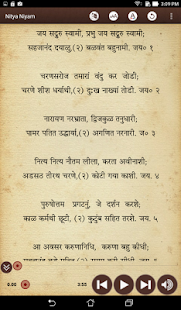 3:09 PM
Nitya Niyam
जय सद्गुरु स्वामी, प्रभु जय सद्गुरु स्वामी;
सहजानंद दयाळु,(२) बळवंत बहुनामी. जय० १
चरणसरोज तमारां वंदु कर जोडी;
चरणे शीश धर्याथी,(२) दुःख नाख्यां तोडी. जय० २
नारायण नरभ्राता, द्विजकुळ तनुधारी;
पामर पतित उद्धार्या,(२) अगणित नरनारी. जय० ३
नित्य नित्य नौतम लीला, करता अविनाशी;
अडसठ तीरथ चरणे,(२) कोटी गया काशी. जय० ४
पुरुषोत्तम प्रगटनुं, जे दर्शन करशे;
काळ कर्मथी छूटी, (२) कुटुंब सहित तरशे. जय० ५
आ अवसर करुणानिधि, करुणा बहु कीधी;
0.00
3:53